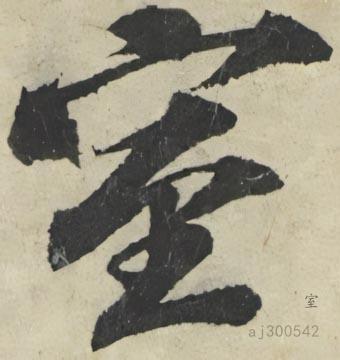 室
室
aj300542